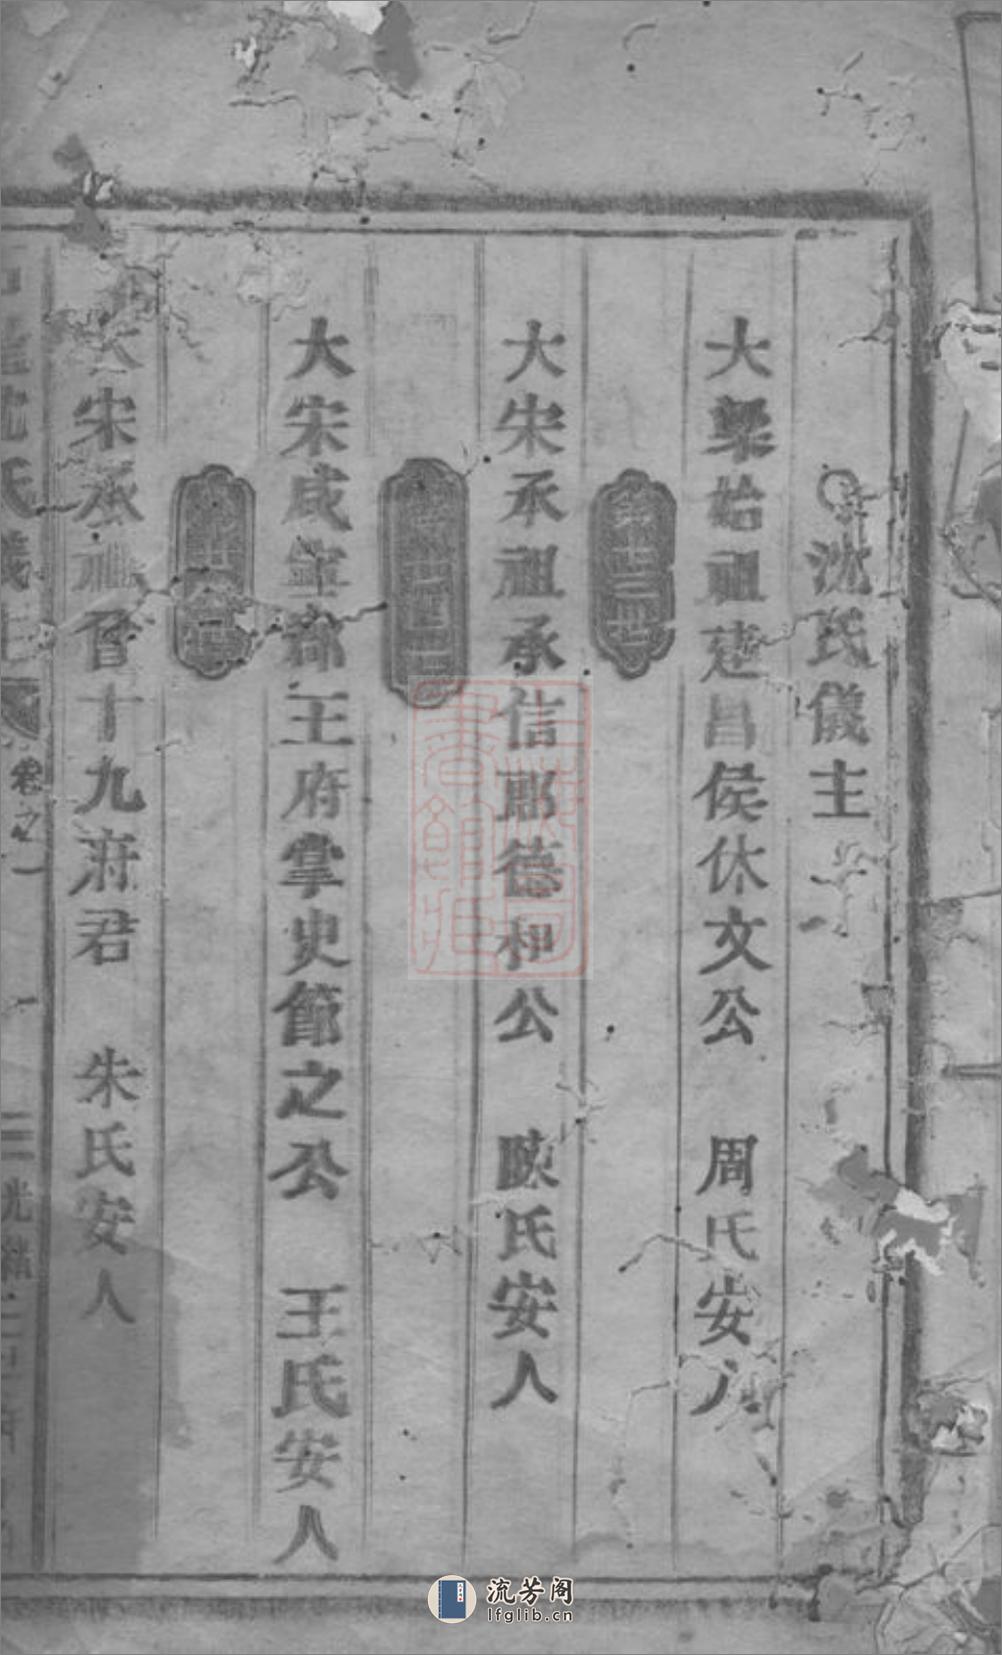 沈氏儀主
大梁始祖建昌侯休文公　周氏安人
第十三世
大宋承祖承信郎德和公　陳氏安人
大宋咸寧郡王府掌史節之公　王氏安人
大宋承祖晉十九府君　朱氏安人
沈氏儀主　卷之一
流芳阁
lfglib.cn